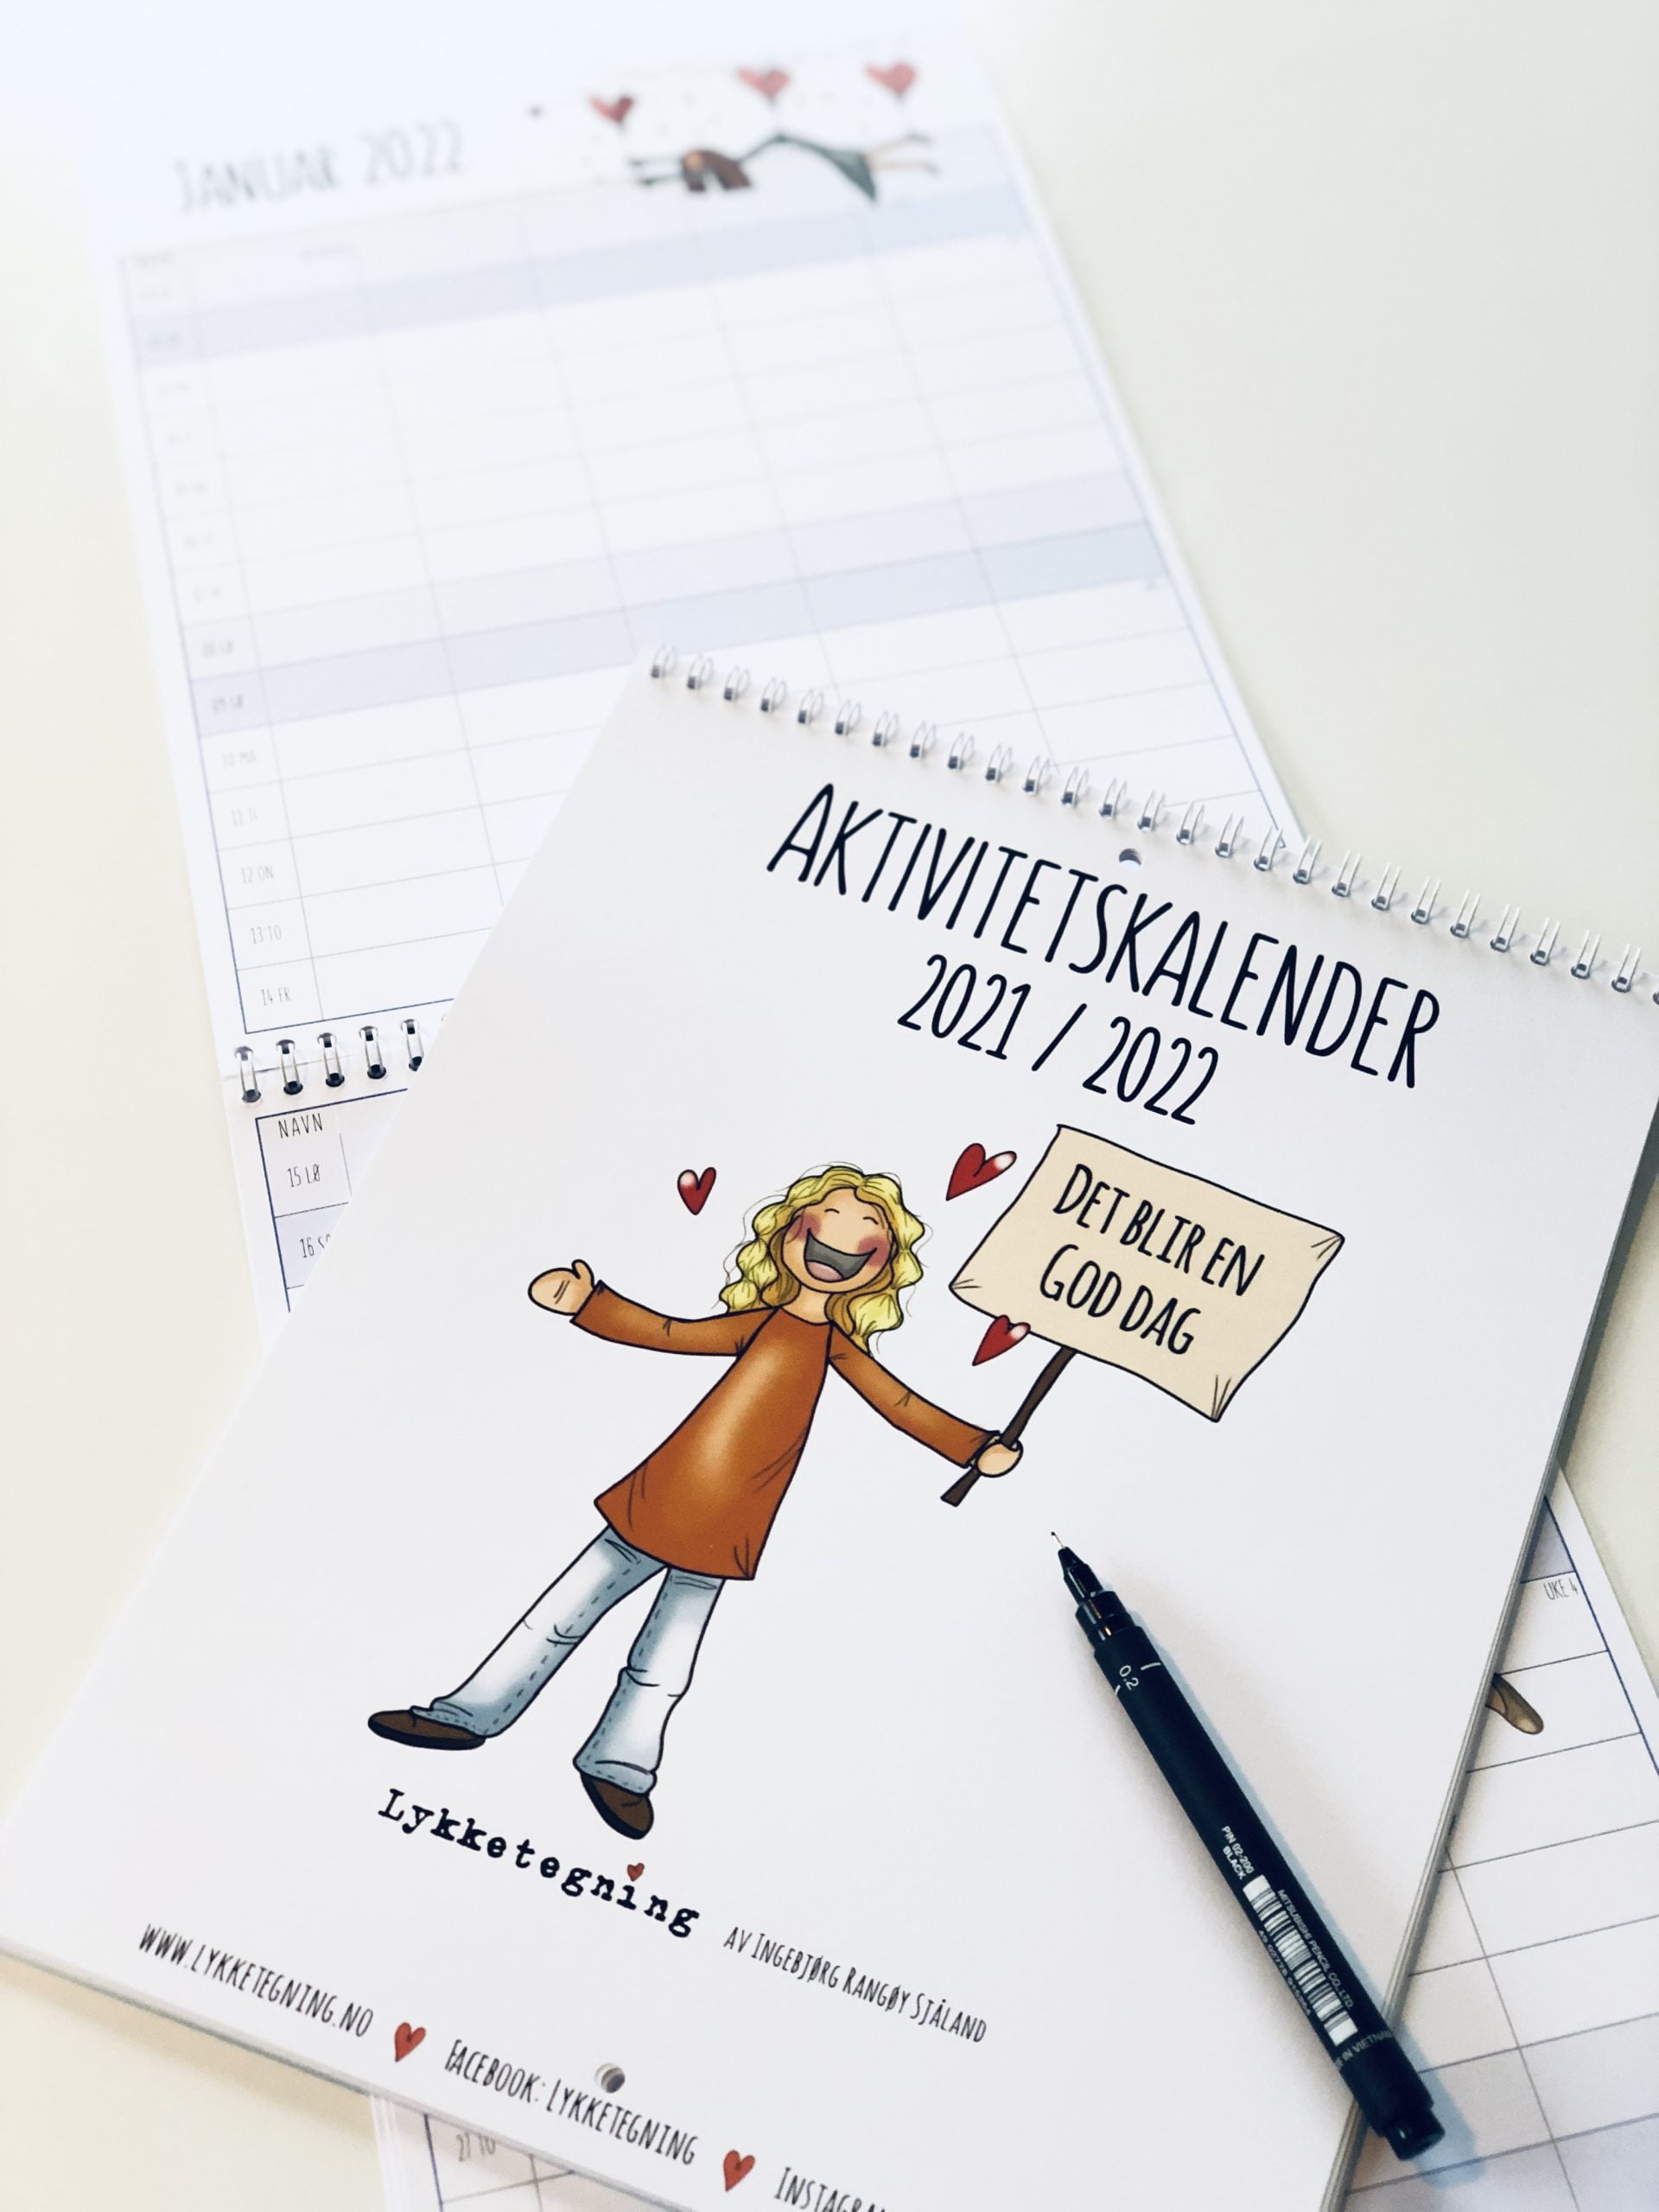 JANUAR 2022
08 LØ
09 SØ
10 MA
11 TI
12 ON
13 TO
14 FR
NAVN
15 LØ
AKTIVITETSKALENDER
2021 / 2022
DET BLIR EN
GOD DAG
Lykketegning
AV INGEBJØRG RANGØY SJÅLAND
WWW.LYKKETEGNING.NO
FACEBOOK: LYKKETEGNING
0.2
PIN 02-200
BLACK
MITSUBISHI PENCIL CO., LTD
IN VIETNAM
UKE 4
27 TO